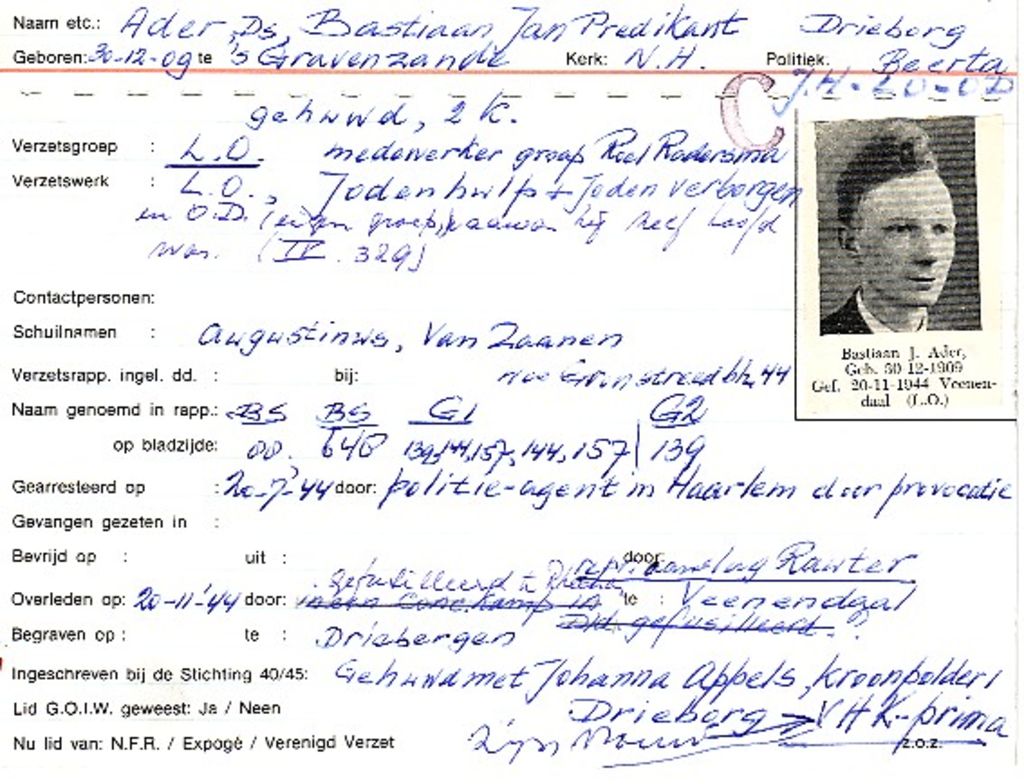 Naam etc.: Ader, Ds, Bastiaan Jan Predikant Drieborg
Geboren: 30-12-09 te 's Gravenzande Kerk: N.H. Politiek: Beerta
C
gehuwd, 2 K.
Verzetsgroep : L.O. medewerker groep Roel Radersma
Verzetswerk : L.O., Joden hulp + Joden verborgen
in O.D. (eigen groep, waarvan hij heel hoofd
was. (IV. 329)
Contactpersonen:
Schuilnamen : Augustinus, Van Zaanen
Verzetsrapp. ingel. dd. : bij: 44
Naam genoemd in rapp.: BS BS G1 G2
op bladzijde: 00. 640 139, 144, 157, 144, 157 | 139
Gearresteerd op : 20-7-'44 door: politie-agent in Haarlem door provocatie
Gevangen gezeten in :
Bevrijd op : uit : door:
repr. aanslag Rauter
gefusilleerd te
Overleden op: 20-11-'44 door: te : Veenendaal
gefusilleerd. ?
Begraven op : te : Driebergen
Ingeschreven bij de Stichting 40/45: Gehuwd met Johanna Appels, Kroonpolder 1
Lid G.O.I.W. geweest: Ja / Neen Drieborg → VHK-prima
Nu lid van: N.F.R. / Expogé / Verenigd Verzet zijn vrouw z.o.z.
Bastiaan J. Ader,
Geb. 30-12-1909
Gef. 20-11-1944 Veenen-
daal (L.O.)